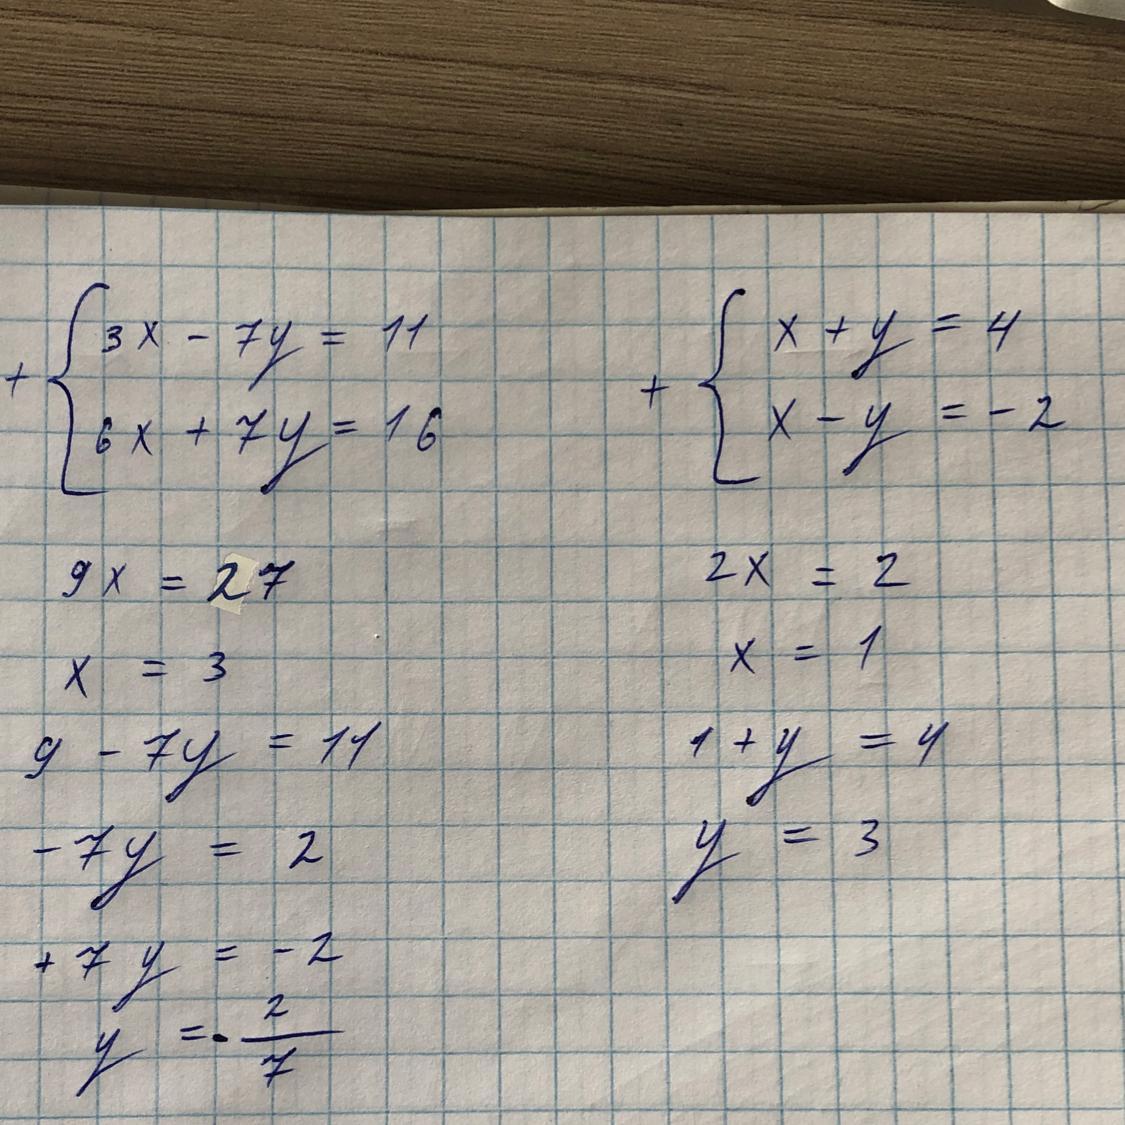 + { 3x - 7y = 11
6x + 7y = 16
9x = 27
x = 3
9 - 7y = 11
-7y = 2
+7y = -2
y = - 2/7
+ { x + y = 4
x - y = -2
2x = 2
x = 1
1 + y = 4
y = 3